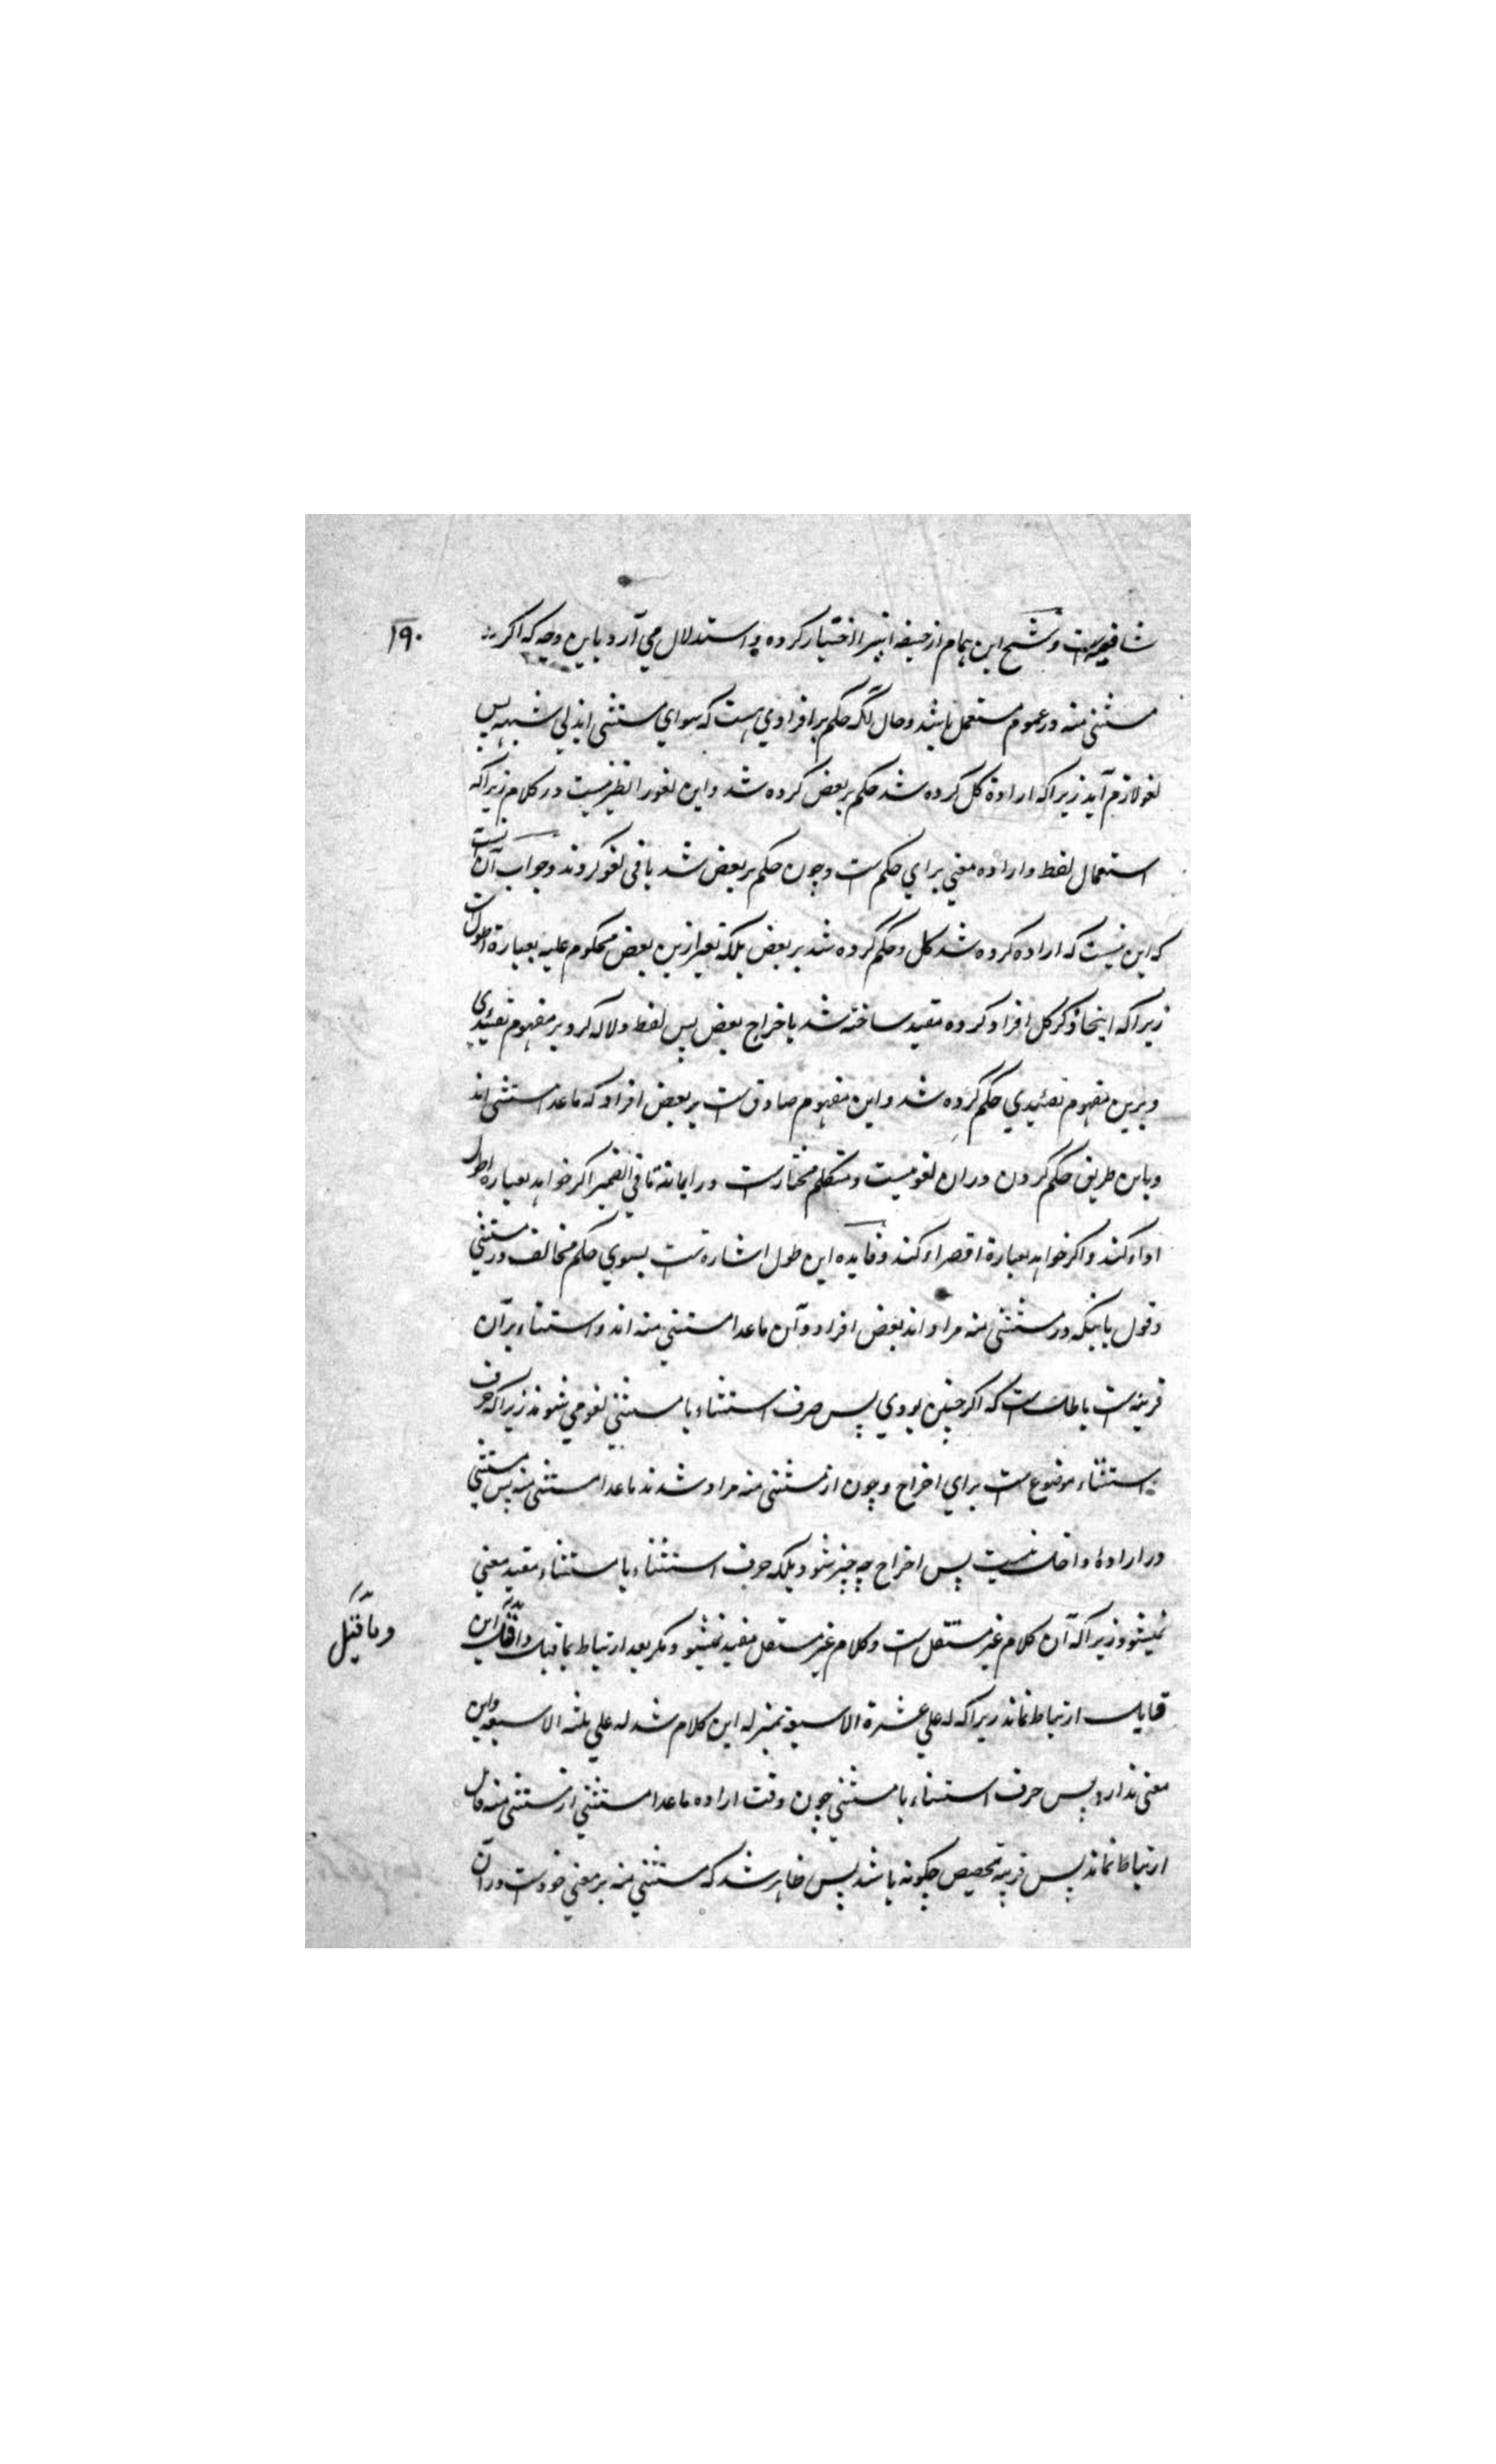 ۱۹۰
شافعیه است و شیخ ابن همام از حنفیه اینرا اختیار کرده و استدلال می آرد باین وجه که اکر
مستثنی منه در عموم مستعمل باشد و حال آنکه حکم بر افرادي هست که سواي مستثنی اند بي شبهه پس
لغو لازم آید زیراکه ارادة کل کرده شد حکم بر بعض کرده شد و این لغو را نظیر نیست در کلام زیراکه
استعمال لفظ و اراده معني براي حکم ست و چون حکم بر بعض شد باقی لغو کردند و جواب آن نست
که این نیست که اراده کرده شد کل و حکم کرده شد بر بعض بلکه تعبیر ازین بعض محکوم علیه بعبارة اطول ست
زیراکه اینجا ذکر کل افراد کرده مقید ساخته شد باخراج بعض پس لفظ دلاله کرد بر مفهوم تقئیدي
و برین مفهوم تقئیدي حکم کرده شد و این مفهوم صادق ست بر بعض افراد که ماعدا مستثنی اند
و باین طریق حکم کردن دران لغو نیست و متکلم مختارست در ایمانه ما في الضمیر اکر خواهد بعبارة اطول
اداء کند و اکر خواهد بعبارة اقصر اد کند و فایده این طول اشارة ست بسوي حکم مخالف در مستثني
و قول باینکه در مستثنی منه مراد اند بعض افراد و آن ماعدا مستثني منه اند و استثناء بر آن
قرینه است باطل ست که اکر چنین بودي پس حرف استثناء با مستثني لغو مي شوند زیراکه حرف
استثناء موضوع ست براي اخراج و چون از مستثنی منه مراد شدند ماعدا مستثنی منه پس مستثني
در ارادۀ داخل نیست پس اخراج چه چیز شود بلکه حرف استثناء با مستثناء مقید معني
نمیشود زیراکه آن کلام غیر مستقل ست و کلام غیر مستقل مفید نمیشود مکر بعد ارتباط بماقبل و ماقبل این
قابل ارتباط نماند زیراکه له علي عشرة الا سبعة بمنزله این کلام شد له علي ثلثه الا سبعه و این
معنی ندارد پس حرف استثناء با مستثني چون وقت اراده ماعدا مستثني از مستثنی منه قابل
ارتباط نماند پس قرینه تخصیص چکونه باشد پس ظاهر شد که مستثني منه بر معني خودست دران
و ما قبل